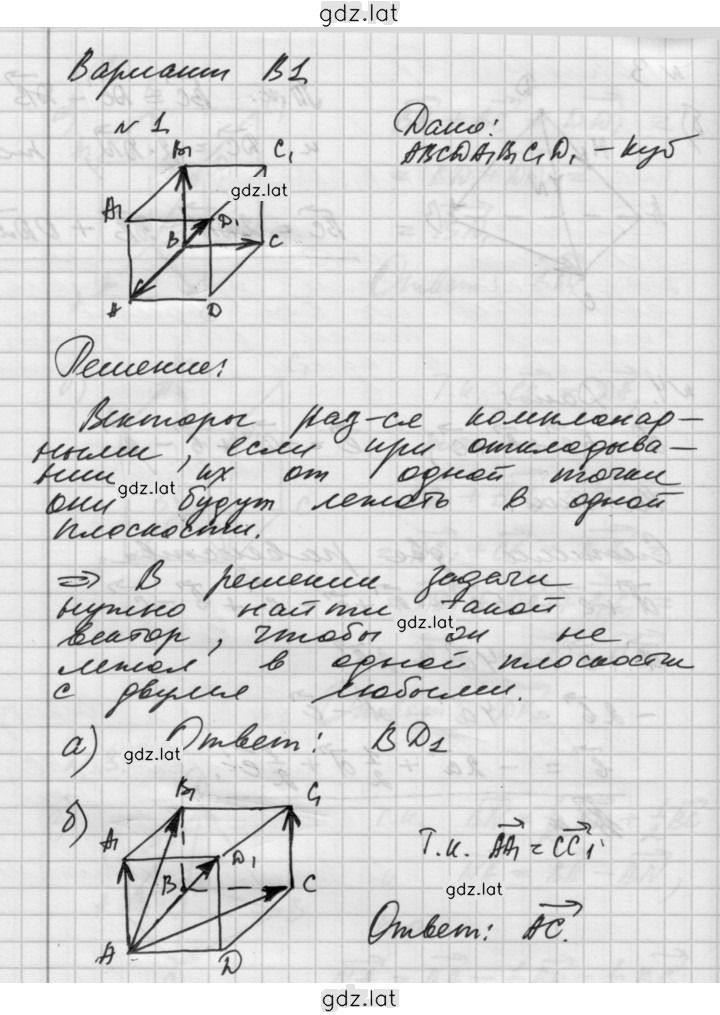 gdz.lat
Вариант В1
№ 1
Дано:
ABCDA₁B₁C₁D₁ – куб
B₁ C₁
gdz.lat
A₁ D₁
B C
A D
Решение:
Векторы наз-ся компланар-
ными, если при откладыва-
нии их от одной точки
gdz.lat
они будут лежать в одной
плоскости.
⇒ В решении задачи
нужно найти такой
gdz.lat
вектор, чтобы он не
лежал в одной плоскости
с двумя любыми.
а) Ответ: BD₁
gdz.lat
б)
B₁ C₁
A₁ D₁
Т.к. AA₁ = CC₁
B C
gdz.lat
Ответ: AC.
A D
gdz.lat